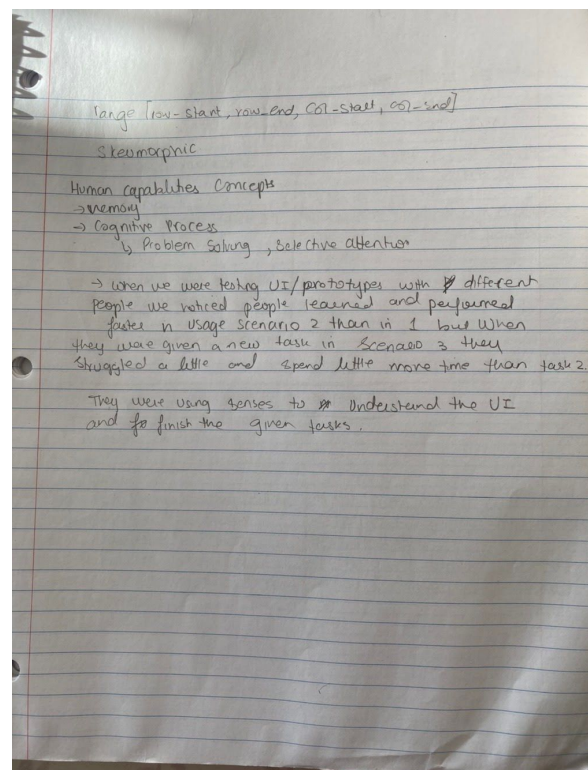 range [row-start, row_end, col-start, col-end]
Skeumorphic
Human capabilities Concepts
→ memory
→ Cognitive Process
↳ Problem Solving , Selective attention
→ when we were testing UI/prototypes with different
people we noticed people learned and performed
faster n usage scenario 2 than in 1 but when
they were given a new task in Scenario 3 they
struggled a little and spend little more time than task 2.
They were using senses to understand the UI
and finish the given tasks.